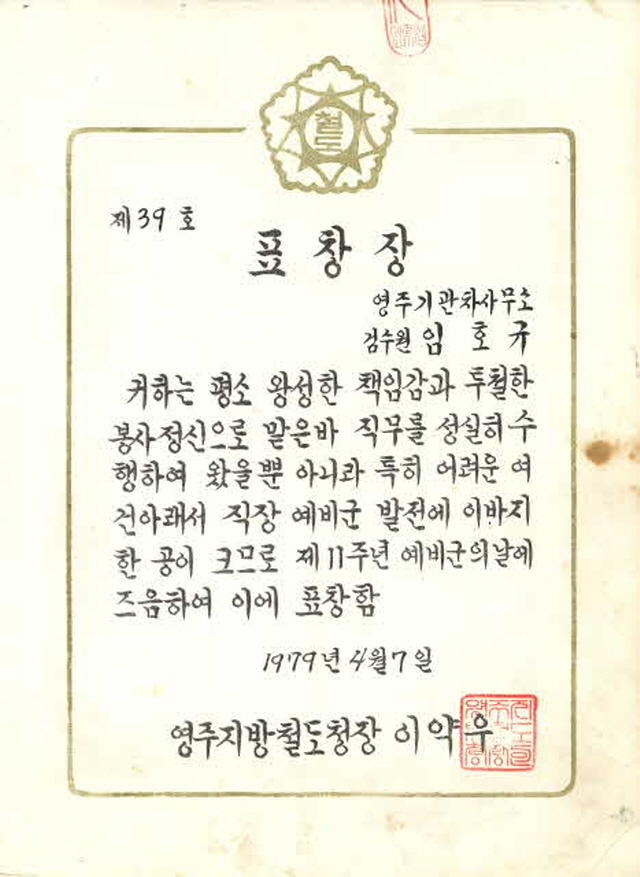 철도
제39호
표창장
영주기관차사무소
검수원 임호규
귀하는 평소 왕성한 책임감과 투철한
봉사정신으로 맡은바 직무를 성실히 수
행하여 왔을뿐 아니라 특히 어려운 여
건아래서 직장 예비군 발전에 이바지
한 공이 크므로 제11주년 예비군의날에
즈음하여 이에 표창함
1979년 4월 7일
영주지방철도청장 이약우